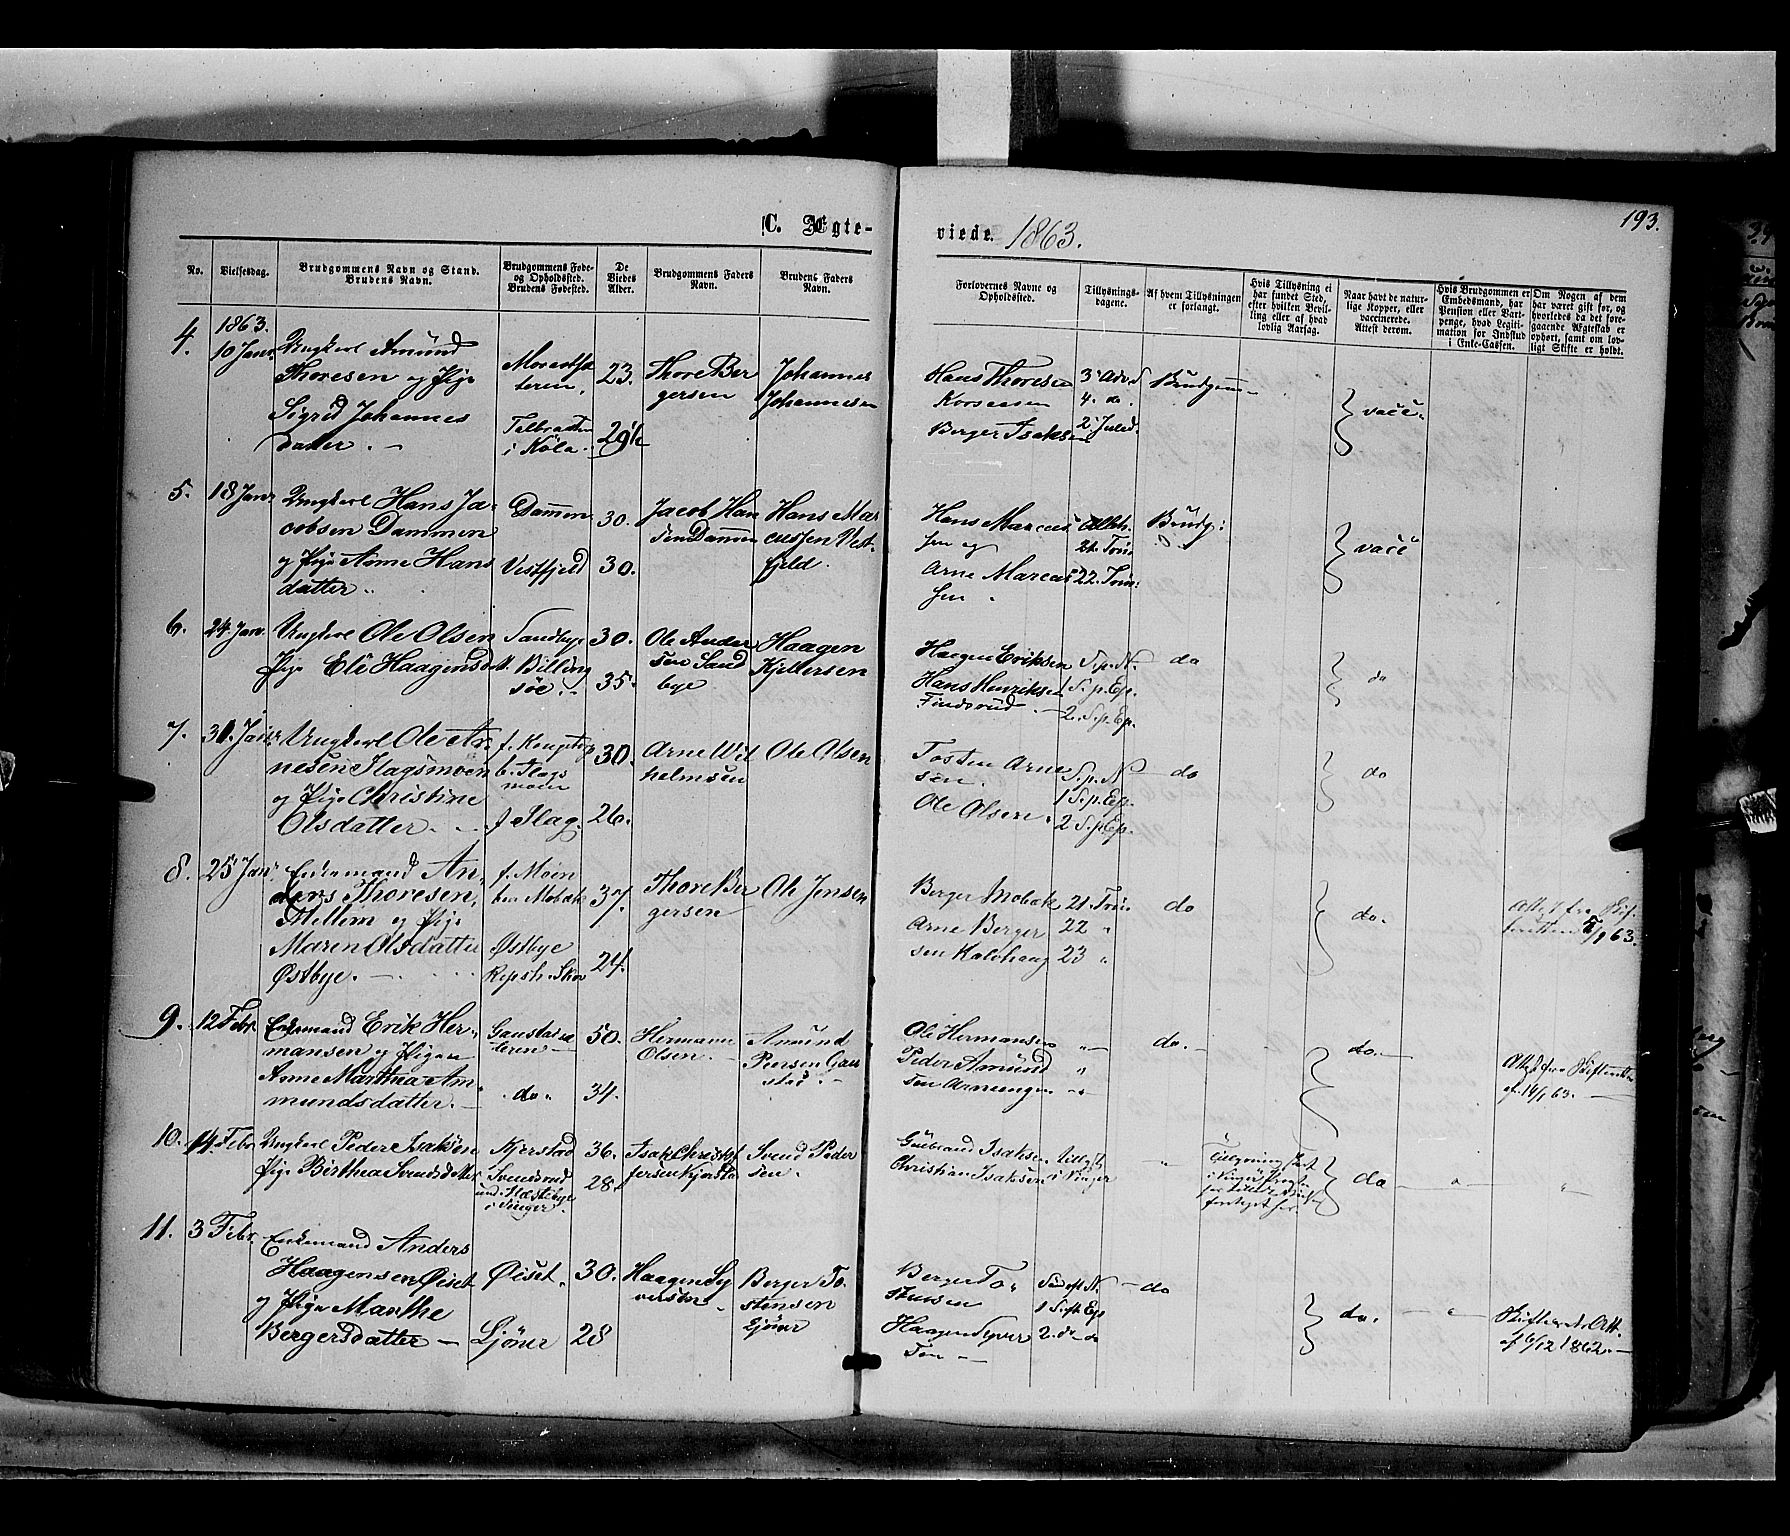 C. Ægte-
viede. 1863.
193.
No.
Vielsesdag.
Brudgommens Navn og Stand.
Brudens Navn.
Brudgommens Føde-
og Opholdssted.
Brudens Fødested.
De
Viedes
Alder.
Brudgommens Faders
Navn.
Brudens Faders
Navn.
Forlovernes Navne og
Opholdssted.
Tillysnings-
dagene.
Af hvem Tillysningen
er forlangt.
Hvis Tillysning ei
har fundet Sted,
efter hvilken Bevil-
ling eller af hvad
lovlig Aarsag.
Naar havt de natur-
lige Kopper, eller
vaccinerede.
Attest derom.
Hvis Brudgommen er
Embedsmand, har
Pension eller Vart-
penge, hvad Legiti-
mation for Indskud
i Enke-Cassen.
Om Nogen af dem
har været gift før, og
hvorledes da det fore-
gaaende Ægteskab er
ophørt, samt om lov-
ligt Skifte er holdt.
4.
1863.
10 Janr.
Ungkarl Amund
Thoresen og Pige
Sigrid Johannes
datter. —
23.
Tho­re Ber
gersen
Johannes
Johannesen
i Köla.
29½
Hans Thoresen
Berger Isaksen
3 Adv. S
4. do.
2 Juled.
Brudgom—
vacc.
5.
18 Janr
Ungkarl Hans Ja-
cobsen Dammen
og Pige Anne Hans
datter.
Dammen
Vestfjeld
30.
30.
Jacob Han
sen Dammen
Hans Mar
cussen Vest-
fjeld.
Hans Marcus
sen og
Arne Marcus
sen.
21. Trin
22. Trin.
Brudg:
vacc
6.
24 Janr.
Ungkarl Ole Olsen
Pige Eli Haagensd.
Sandbye
Billing
söe.
30.
35.
Ole Ander
sen Sand
bye
Haagen
Kjeldersen
Haagen Eriksen
Hans Henriksen
Findsrud. —
S. p. N.
1 S. p. Ep.
2. S. p. Ep.
do
do
7.
31. Janr
Ungkarl Ole Ar-
nesen Flagsmoen
og Pige Christine
Olsdatter.
b. Flags
moen
f Flag.
30.
26.
Arne Wil
helmsen
Ole Olsen
Tosten Arne
sen.
Ole Olsen
S. p. N
1 S. p. Ep.
2 S. p. Ep.
do
do
8.
25 Janr.
Enkemand An-
ders Thoresen,
og Pige
Maren Olsdatter
Østbye. —
f. Moen
Østbye
37.
24.
Thore Ber
gersen
Ole Jensen
Berger Mobæk
Arne Berger
sen Kalvhaug
21. Trin
22 "
23 "
do
do.
9.
12 Febr.
Enkemand Erik Her-
mansen og Pigen
Anne Marthea Am-
mundsdatter. —
do.
50.
34.
Hermann
Olsen. —
Amund
Ole Hermansen
Peder Amund
sen Arneengen
do.
do. —
Attest fra Skifteretten
af 14/1 63. —
10.
14. Febr
Ungkarl Peder Isaksen
Pige Birthea Svendsdatter
Kjerstad
i Vinger.
36.
28.
Isak Christof
fersen Kjerstad
Svend Peder
sen.
Gulbrand Isaksen
Christian Isaksen
i Vinger
do
11.
3 Febr.
Enkemand Anders
Haagensen Øiset
og Pige Marthe
Bergersdatter —
Øiset.
Ljöner
30.
28
Haagen Sy
versen
Berger To-
stensen
Ljöner
Berger To-
stensen
Haagen Syver
sen —
1 S. p. Ep
2. do
do
do.
af 6/12 1862. —